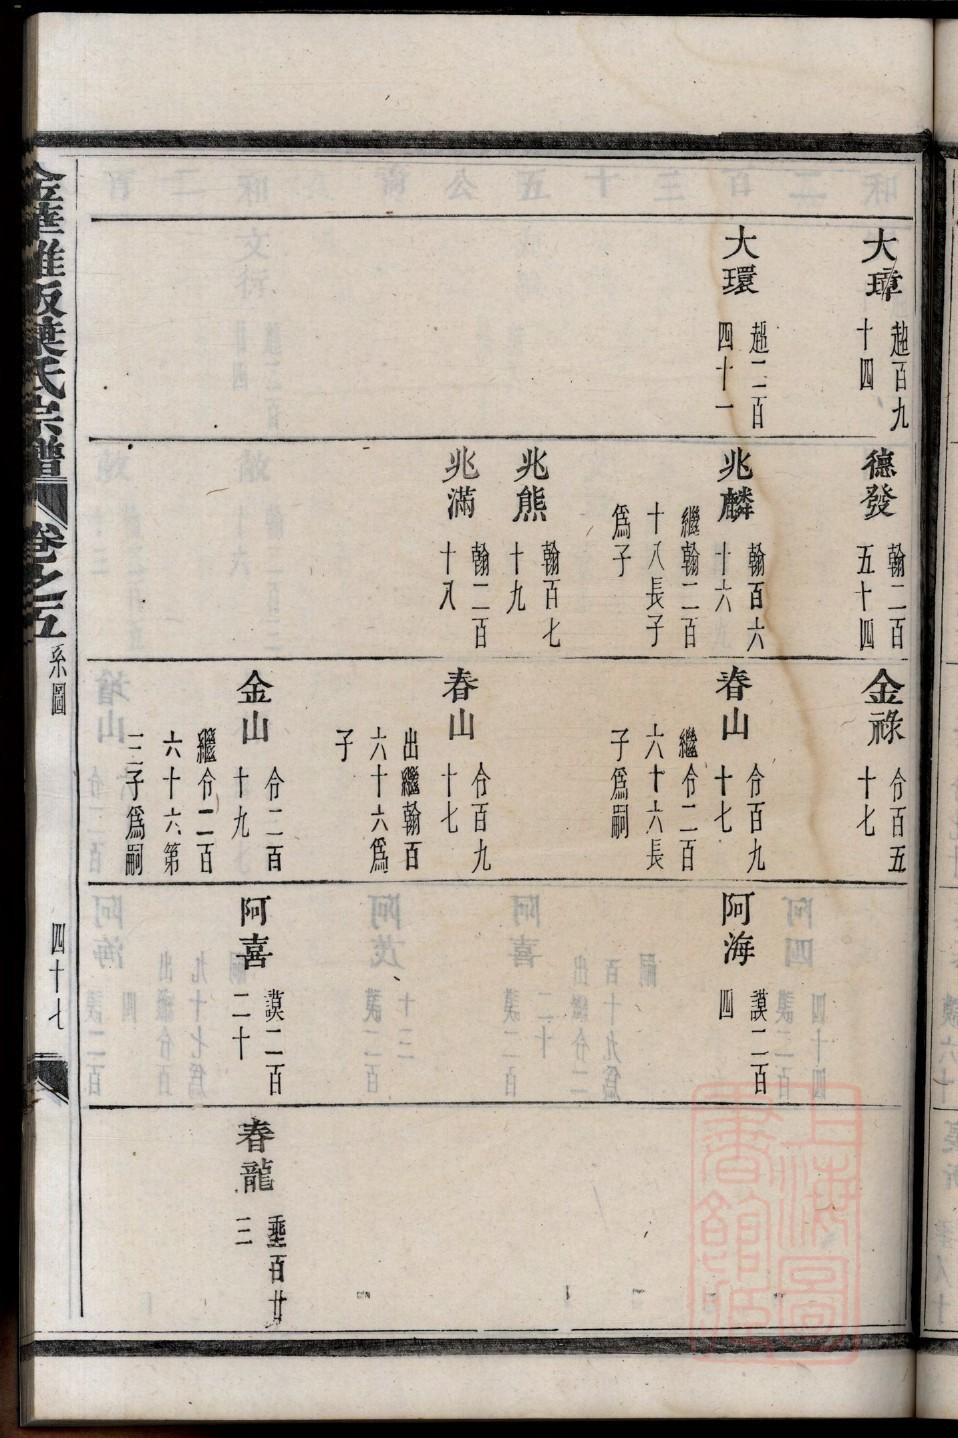 大璋
趙百九
十四
大環
趙二百
四十一
德發
翰二百
五十四
兆麟
翰百六
十六
繼翰二百
十八長子
爲子
兆熊
翰百七
十九
兆滿
翰二百
十八
金祿
令百五
十七
春山
令百九
十七
繼令二百
六十六長
子爲嗣
春山
令百九
十七
出繼翰百
六十六爲
子
金山
令二百
十九
繼令二百
六十六第
三子爲嗣
阿海
謨二百
四
阿喜
謨二百
二十
春龍
垂百廿
三
金華雅畈葉氏宗譜
卷之五
系圖
四十七
上海圖書館藏